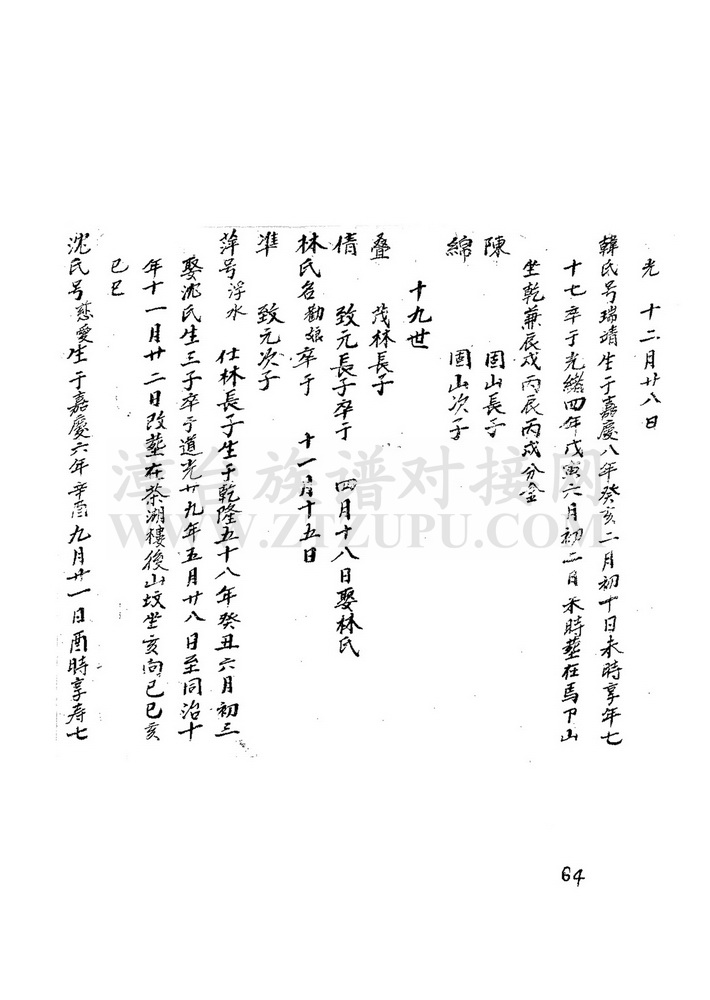 光　十二月廿八日
韓氏号瑞靖生于嘉慶八年癸亥二月初十日未時享年七
十七卒于光緒四年戊寅六月初二日未時塟在馬下山
坐乾兼辰戌丙辰丙戌分金
陳　固山長子
綿　固山次子
十九世
叠　茂林長子
倩　致元長子卒于　四月十八日娶林氏
林氏名勸娘卒于　十一月十五日
准　致元次子
萍号浮水　仕林長子生于乾隆五十八年癸丑六月初三
娶沈氏生三子卒于道光廿九年五月廿八日至同治十
年十一月廿二日改塟在茶湖樓後山坟坐亥向巳巳亥
巳巳
沈氏号慈愛生于嘉慶六年辛酉九月廿一日酉時享寿七
漳台族谱对接网
WWW.ZTZUPU.COM
64